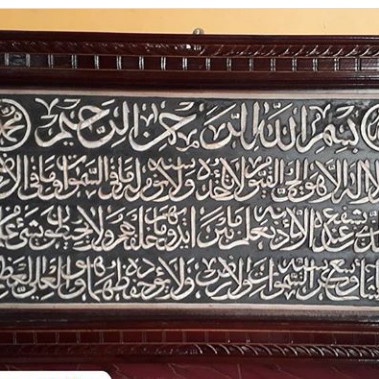 بسم الله الرحمن الرحيم
لا اله الا هو الحي القيوم لا تاخذه سنة ولا نوم له ما في السموات وما في الا
يشفع عنده الا باذنه يعلم ما بين ايديهم وما خلفهم ولا يحيطون بشئ
وسع كرسيه السموات والارض ولا يؤده حفظهما وهو العلي العظيم